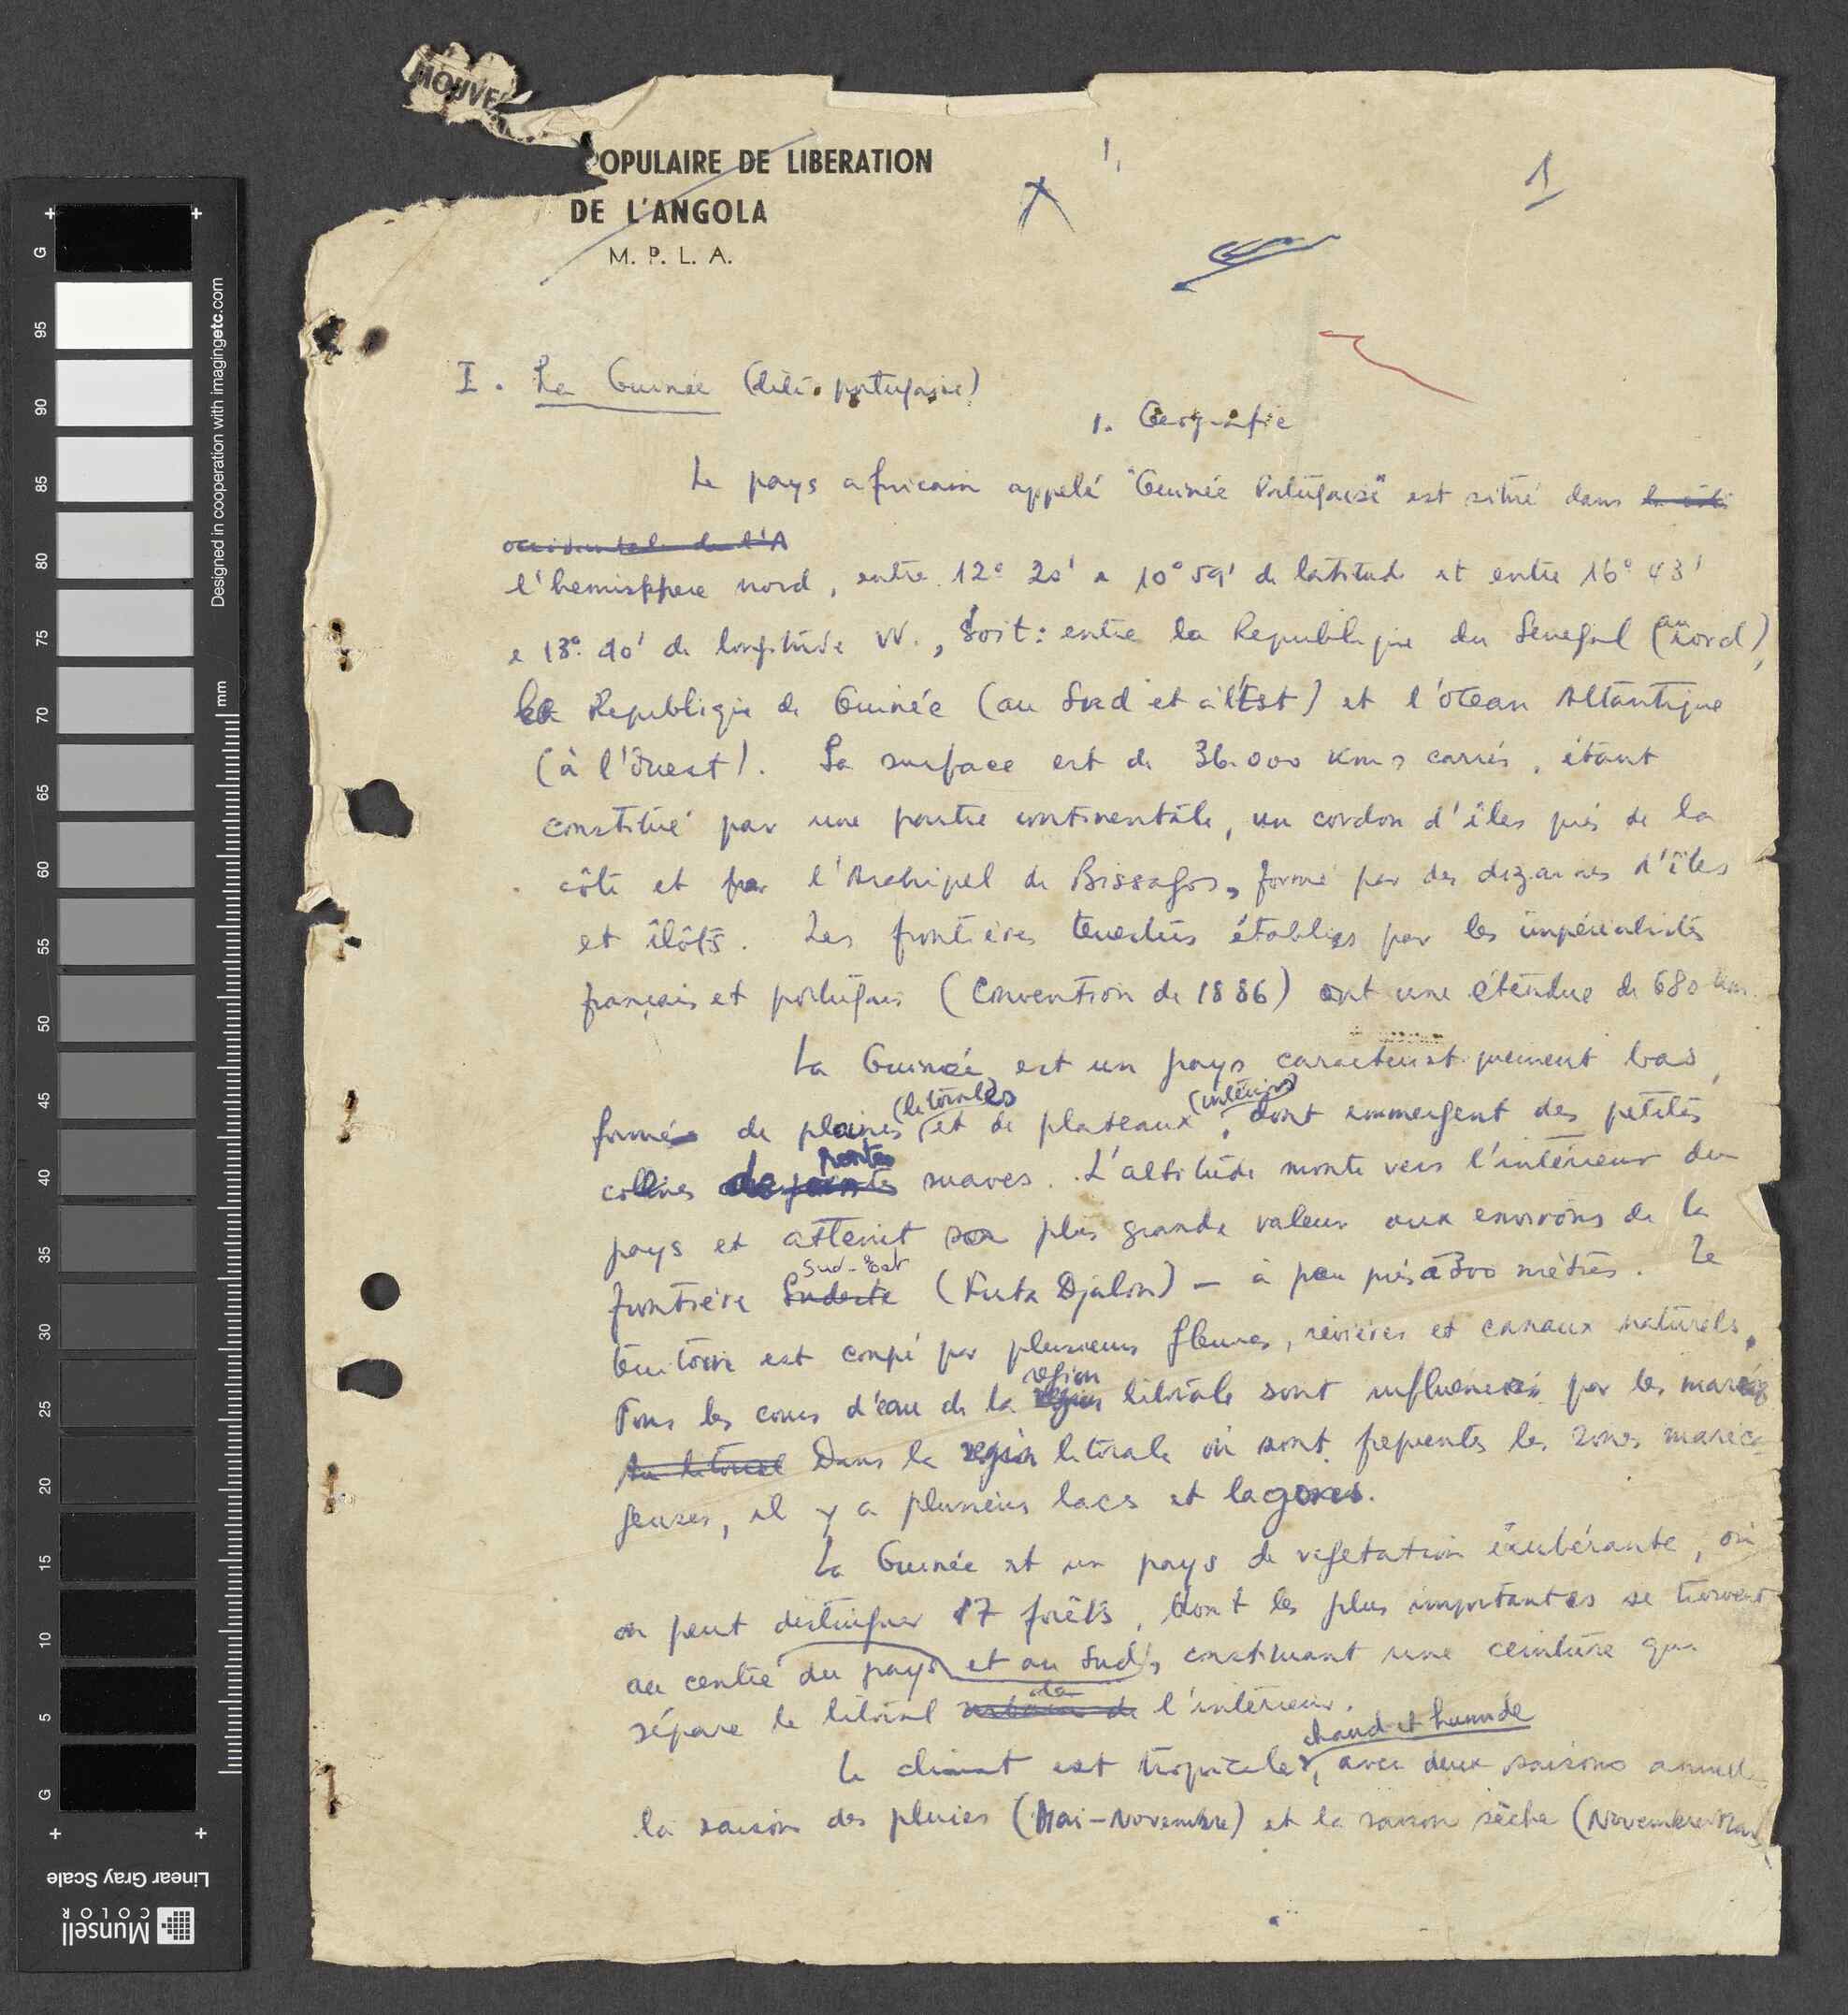 MOUVE
POPULAIRE DE LIBERATION
DE L'ANGOLA
M. P. L. A.
1
I. La Guinée (dite portugaise)
1. Geografie
Le pays africain appelé "Guinée Portugaise" est situé dans la côte
occidentale de l'A
l'hemisppere nord, entre 12° 20' e 10° 59' de latitude et entre 16° 43'
e 13° 90' de longitude W., soit: entre la Republique du Senegal (au nord),
la Republique de Guinée (au Sud et à l'Est) et l'Ocean Atlantique
(à l'Ouest). La surface est de 36.000 kms carrés, étant
constitué par une partie continentale, un cordon d'îles près de la
côte et par l'Archipel de Bissagos, formé par des dizaines d'îles
et îlôts. Les frontières terrestres établies par les impérialistes
français et portugais (Convention de 1886) ont une étendue de 680 km.
La Guinée est un pays caracteristiquement bas,
(litorales) (intérieurs)
formé de plaines et de plateaux, dont emmergent des petites
pentes
collines de pointes suaves. L'altitude monte vers l'intérieur du
pays et atteint sa plus grande valeur aux environs de la
Sud-Est
frontière Sudeste (Futa Djalon) – à peu près à 300 mètres. Le
territoire est coupé par plusieurs fleuves, rivières et canaux naturels.
region
Tous les cours d'eau de la region litorale sont influencés par les marées
du litoral Dans la region litorale où sont frequentes les zones maréca-
geuses, il y a plusieurs lacs et lagones.
La Guinée est un pays de vegetation exubérante, où
on peut distinguer 17 forêts, dont les plus importantes se trouvent
au centre du pays et au Sud, constituant une ceinture qui
de
sépare le litoral de l'intérieur.
chaud et humide
Le climat est tropicale, avec deux saisons annuelles
la saison des pluies (Mai-Novembre) et la saison sèche (Novembre-Mai)